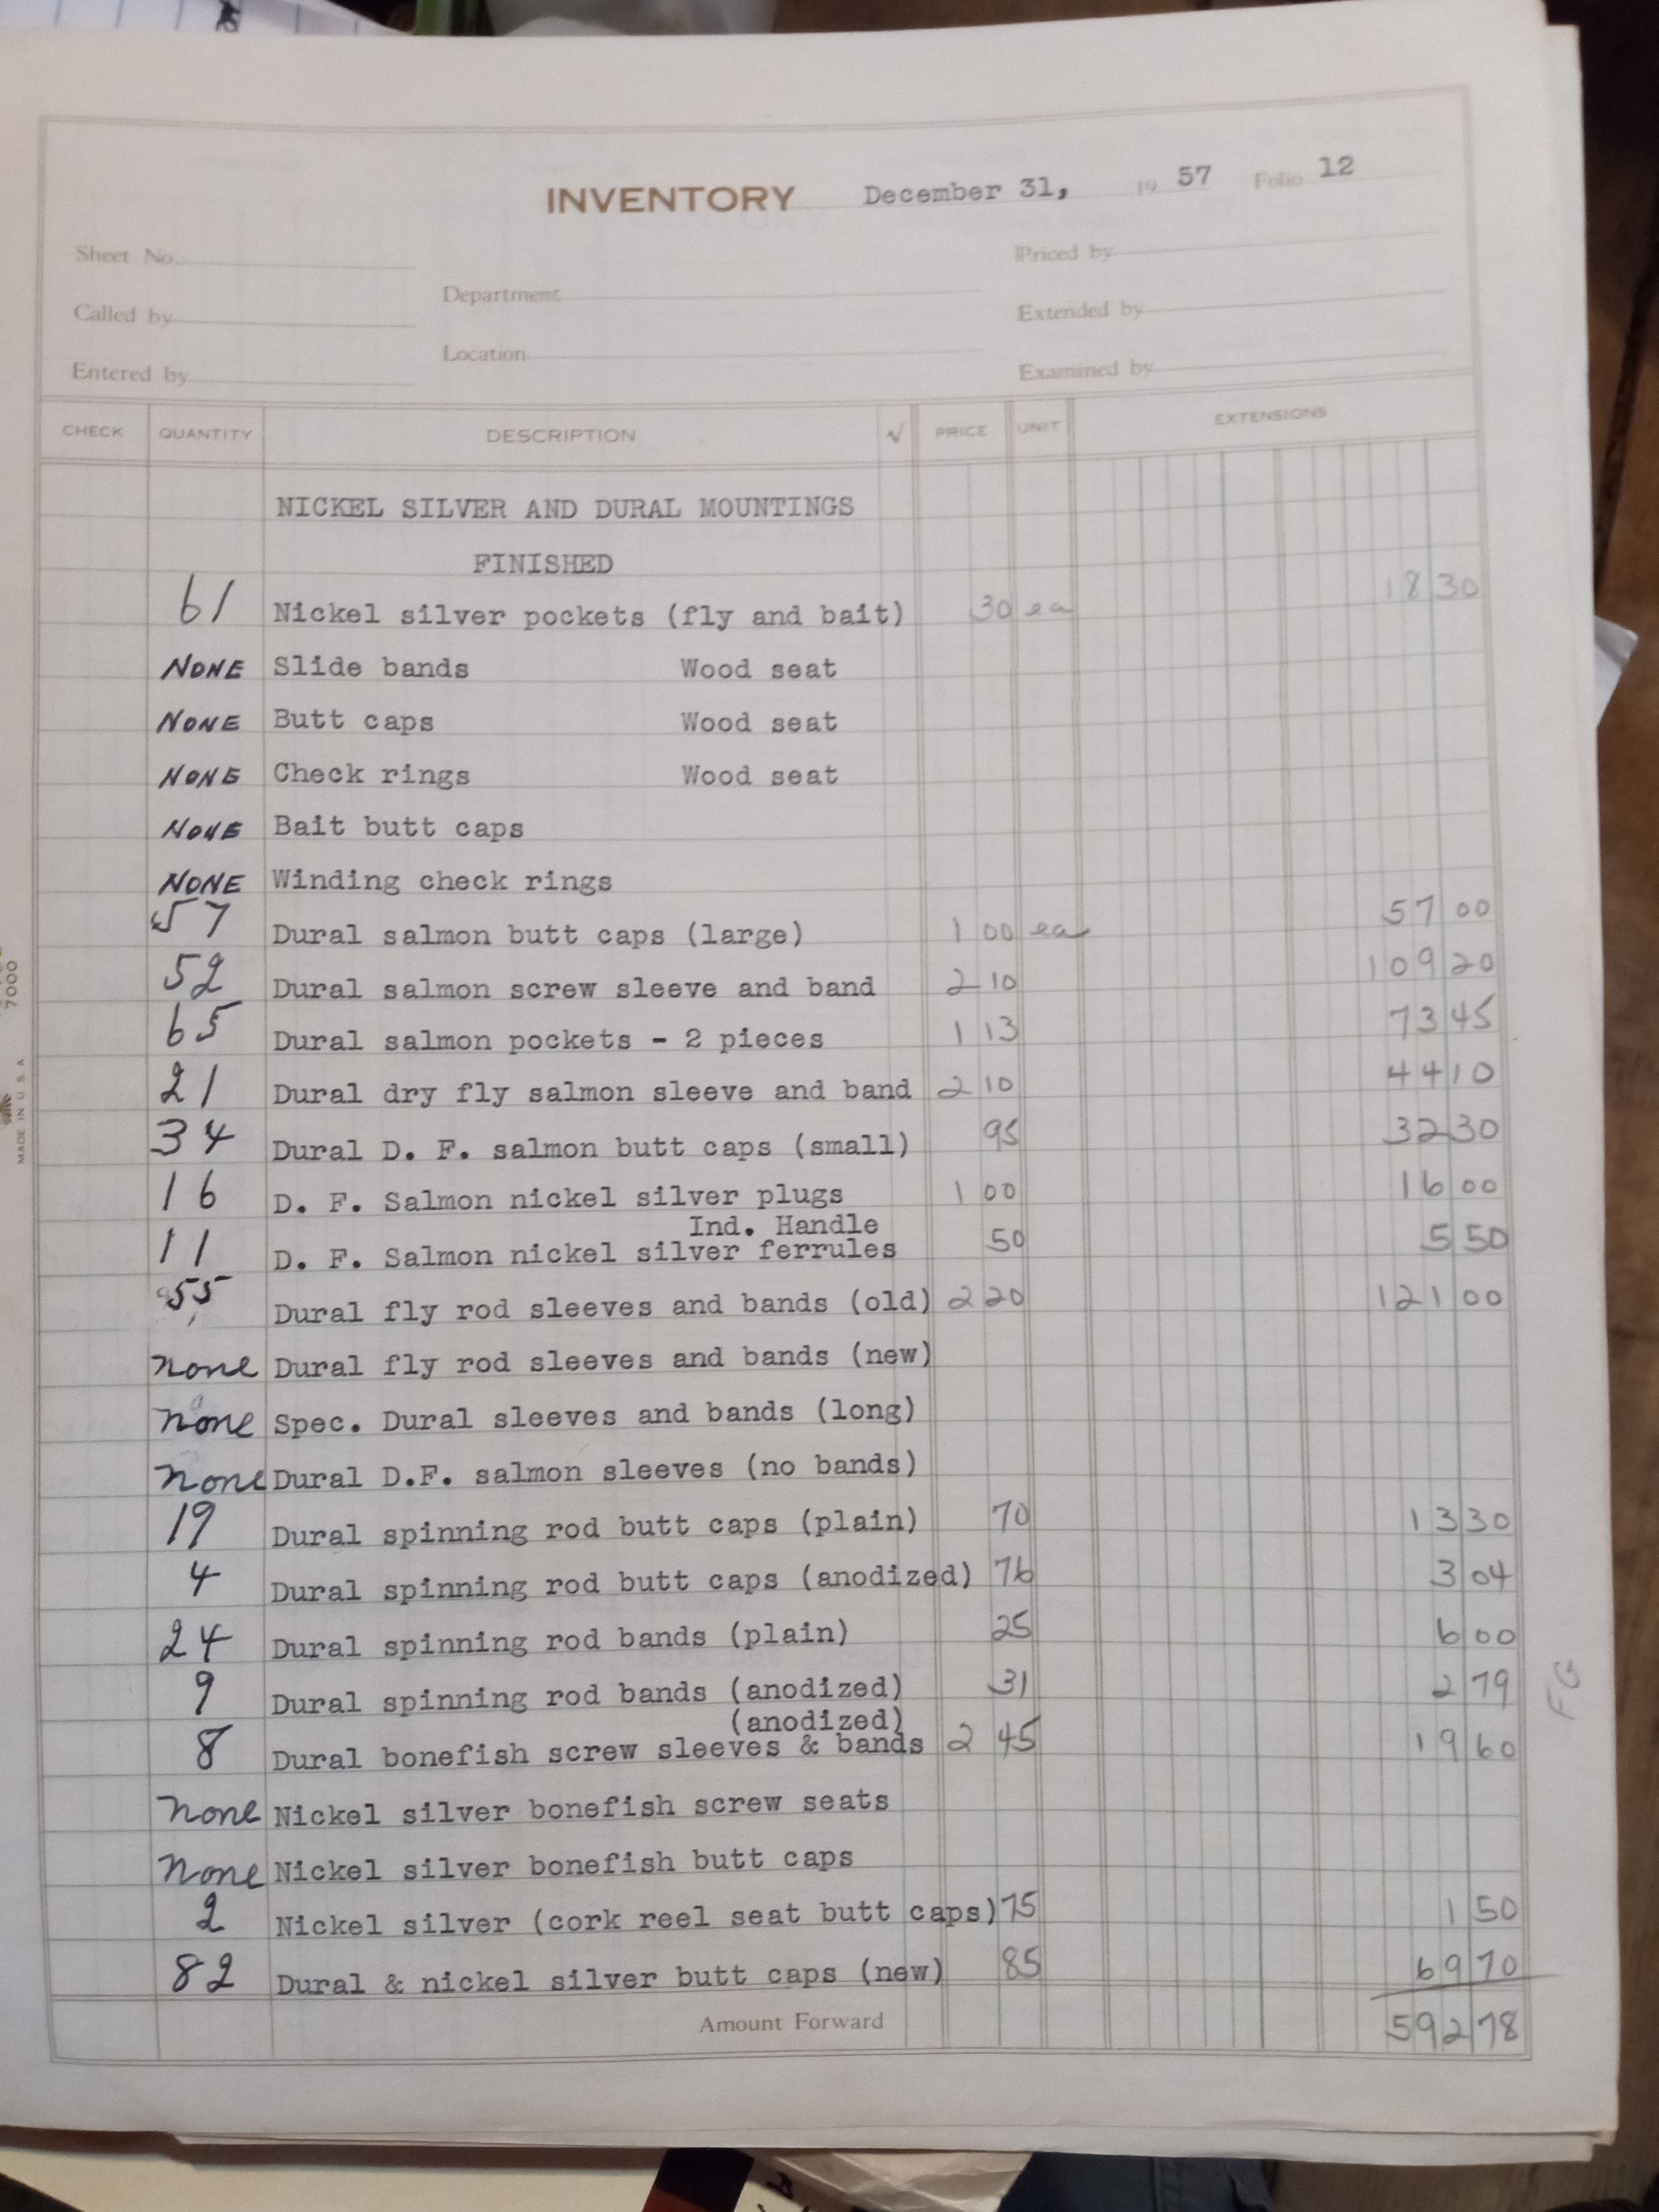 INVENTORY December 31, 19 57 Folio 12
Sheet No. Priced by
Department
Called by Extended by
Location
Entered by Examined by
CHECK QUANTITY DESCRIPTION √ PRICE UNIT EXTENSIONS
NICKEL SILVER AND DURAL MOUNTINGS
FINISHED
61 Nickel silver pockets (fly and bait) 30 ea 18 30
NONE Slide bands Wood seat
NONE Butt caps Wood seat
NONE Check rings Wood seat
NONE Bait butt caps
NONE Winding check rings
57 Dural salmon butt caps (large) 1 00 ea 57 00
52 Dural salmon screw sleeve and band 2 10 109 20
65 Dural salmon pockets - 2 pieces 1 13 73 45
21 Dural dry fly salmon sleeve and band 2 10 44 10
34 Dural D. F. salmon butt caps (small) 95 32 30
16 D. F. Salmon nickel silver plugs 1 00 16 00
Ind. Handle
11 D. F. Salmon nickel silver ferrules 50 5 50
55 Dural fly rod sleeves and bands (old) 2 20 121 00
none Dural fly rod sleeves and bands (new)
none Spec. Dural sleeves and bands (long)
none Dural D.F. salmon sleeves (no bands)
19 Dural spinning rod butt caps (plain) 70 13 30
4 Dural spinning rod butt caps (anodized) 76 3 04
24 Dural spinning rod bands (plain) 25 6 00
9 Dural spinning rod bands (anodized) 31 2 79
(anodized)
8 Dural bonefish screw sleeves & bands 2 45 19 60
none Nickel silver bonefish screw seats
none Nickel silver bonefish butt caps
2 Nickel silver (cork reel seat butt caps) 75 1 50
82 Dural & nickel silver butt caps (new) 85 69 70
Amount Forward 592 78
7000
MADE IN U S A
FG